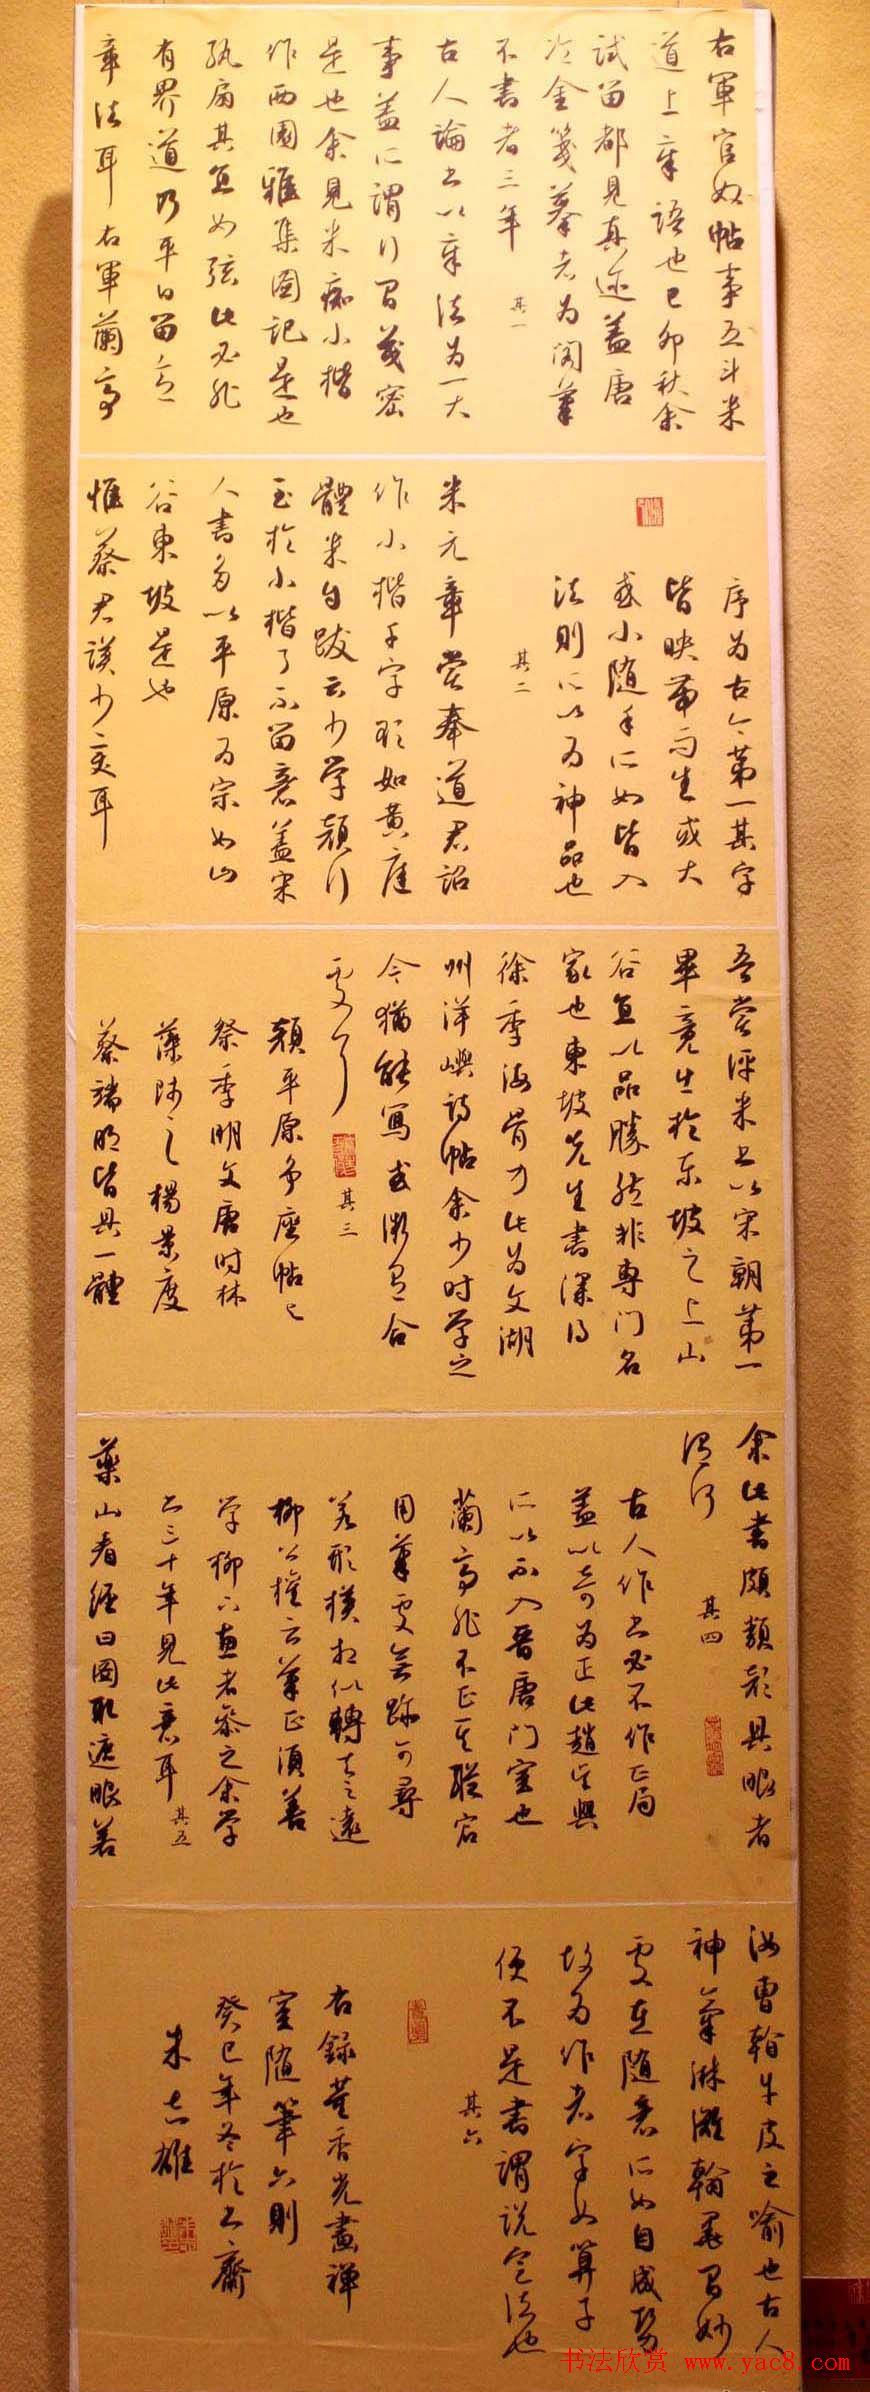 右軍官奴帖事五斗米
道上章語也己卯秋余
試留都見真迹蓋唐
冷金箋摹者為閣筆
不書者三年
其一
古人論書以章法為一大
事蓋所謂行間茂密
是也余見米痴小楷
作西園雅集圖記是也
紈扇其直如弦此必非
有界道乃平日留意
章法耳右軍蘭亭
序为古今第一其字
皆映帶而生或大
或小随手所如皆入
法則所以为神品也
其二
米元章嘗奉道君詔
作小楷千字欲如黄庭
體米自跋云少学顔行
至於小楷了不留意蓋宋
人書多以平原为宗如山
谷東坡是也
惟蔡君謨少变耳
吾嘗評米书以宋朝第一
畢竟生於东坡之上山
谷直以品勝然非専门名
家也東坡先生書深得
徐季海骨力此为文湖
州洋嶼詩帖余少时学之
今猶能寫或微有合
處耳
其三
顔平原争座帖
祭季明文唐时林
藻陟之楊景度
蔡端明皆具一體
余此書頗類顔具眼者
謂何
其四
古人作书必不作正局
蓋以奇为正此趙吴興
所以不入晋唐门室也
蘭亭非不正其縱宕
用筆處无跡可尋
若形模相似轉去之遠
柳公權云筆正須善
学柳下惠者参之余学
书三十年見此意耳
其五
藥山看经曰图取遮眼若
汝曹看牛皮也穿之喻也古人
神氣淋漓翰墨间妙
處在随意所如自成勢
故为作者字如算子
便不是書謂説定法也
其六
右録董香光畫禪
室随筆六則
癸巳年冬於书齋
朱志雄
书法欣赏 www.yac8.com